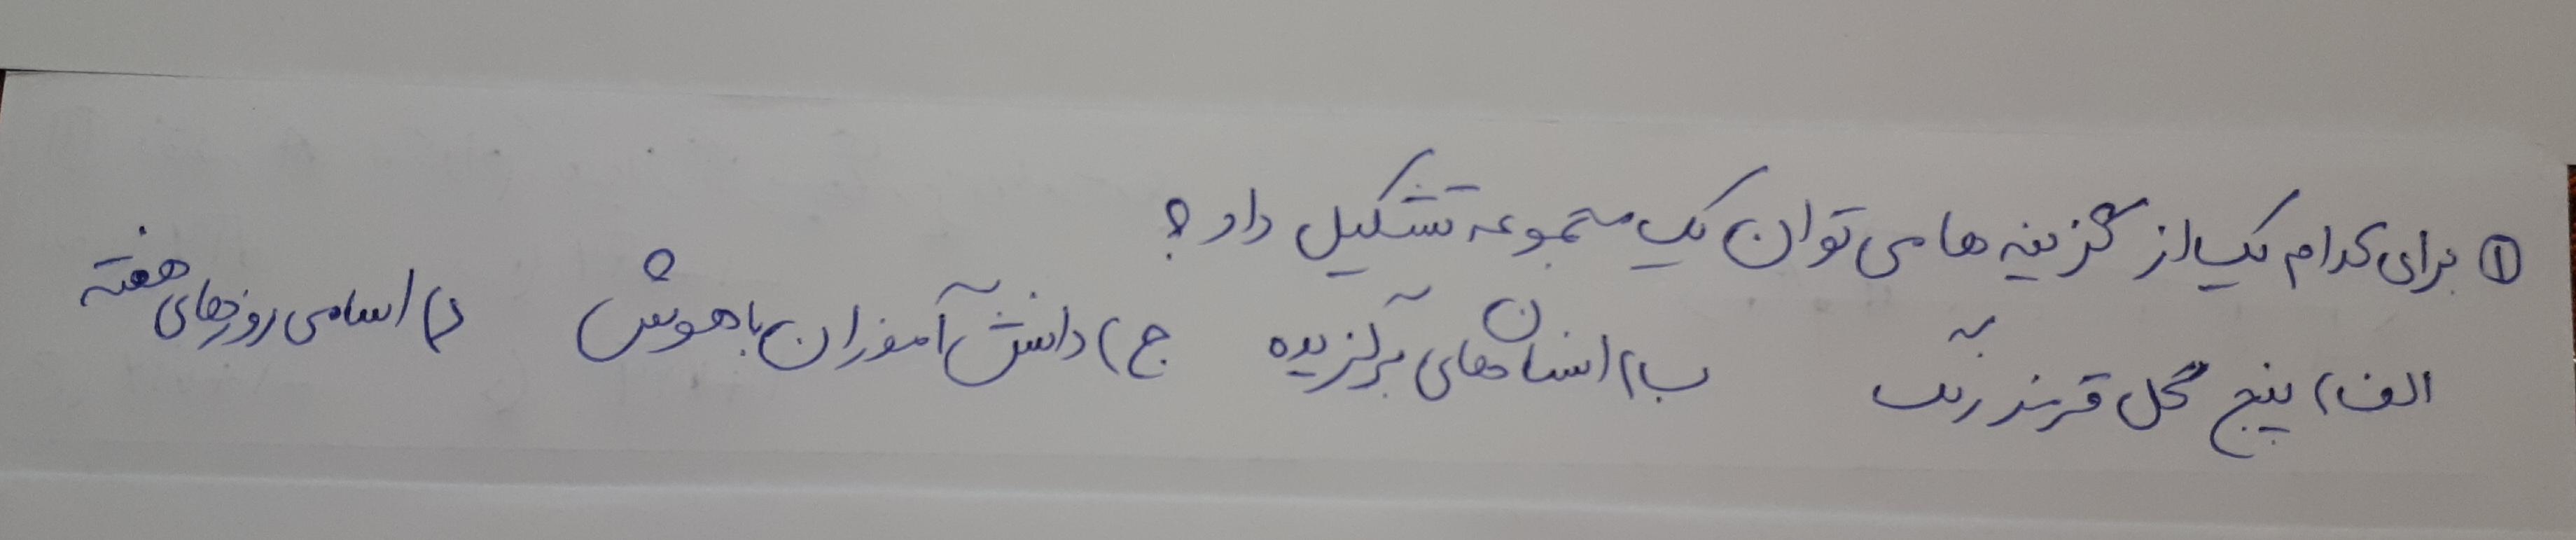 ① برای کدام یک از گزینه ها می توان یک مجموعه تشکیل داد؟
الف) پنج گل قرمز رنگ ب) انسان های برگزیده ج) دانش آموزان باهوش د) اسامی روزهای هفته